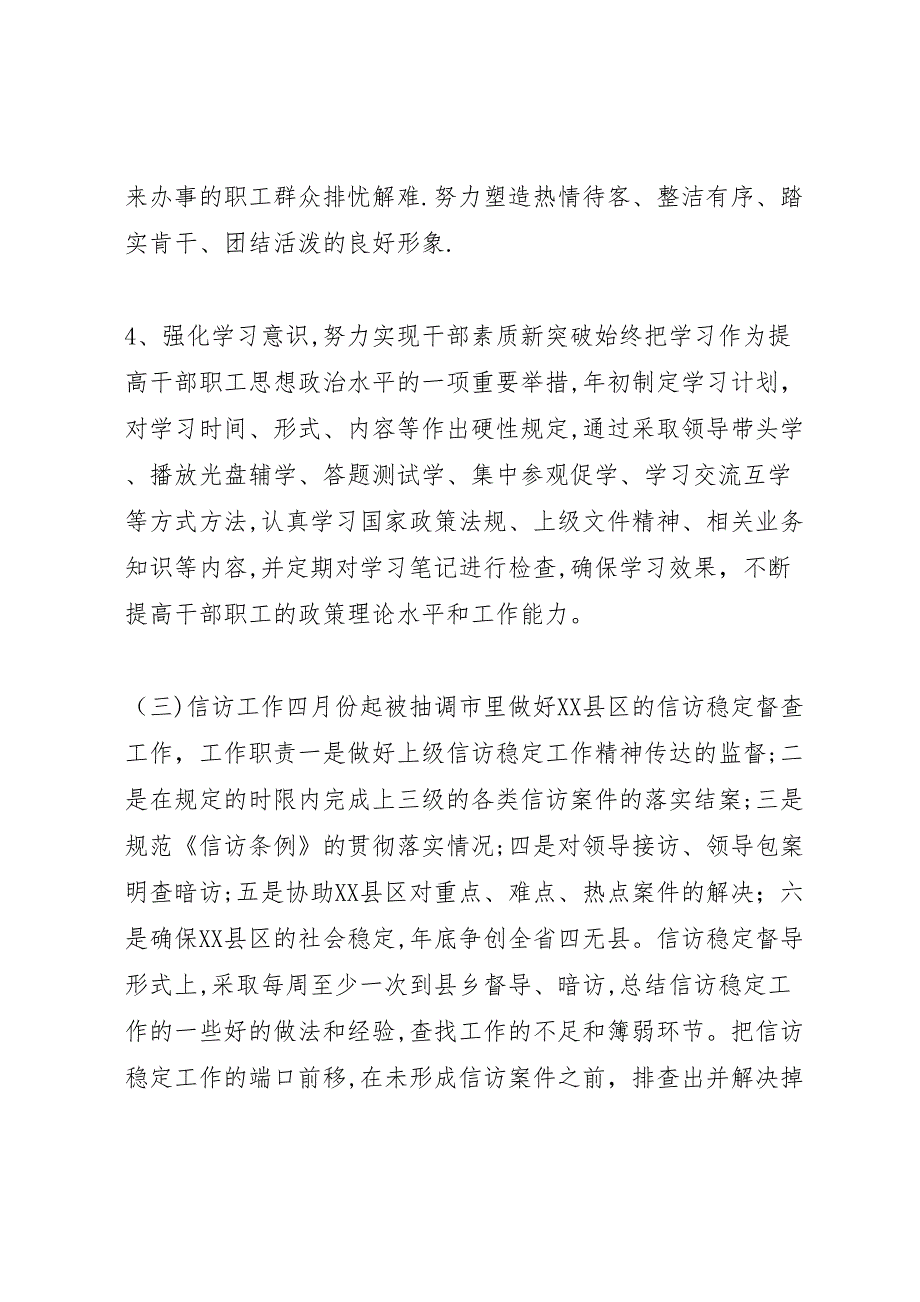 来办事的职工群众排忧解难.努力塑造热情待客、整洁有序、踏
实肯干、团结活泼的良好形象.
4、强化学习意识,努力实现干部素质新突破始终把学习作为提
高干部职工思想政治水平的一项重要举措,年初制定学习计划，
对学习时间、形式、内容等作出硬性规定,通过采取领导带头学
、播放光盘辅学、答题测试学、集中参观促学、学习交流互学
等方式方法,认真学习国家政策法规、上级文件精神、相关业务
知识等内容,并定期对学习笔记进行检查,确保学习效果，不断
提高干部职工的政策理论水平和工作能力。
（三)信访工作四月份起被抽调市里做好XX县区的信访稳定督查
工作，工作职责一是做好上级信访稳定工作精神传达的监督;二
是在规定的时限内完成上三级的各类信访案件的落实结案;三是
规范《信访条例》的贯彻落实情况;四是对领导接访、领导包案
明查暗访;五是协助XX县区对重点、难点、热点案件的解决；六
是确保XX县区的社会稳定,年底争创全省四无县。信访稳定督导
形式上,采取每周至少一次到县乡督导、暗访,总结信访稳定工
作的一些好的做法和经验,查找工作的不足和簿弱环节。把信访
稳定工作的端口前移,在未形成信访案件之前，排查出并解决掉